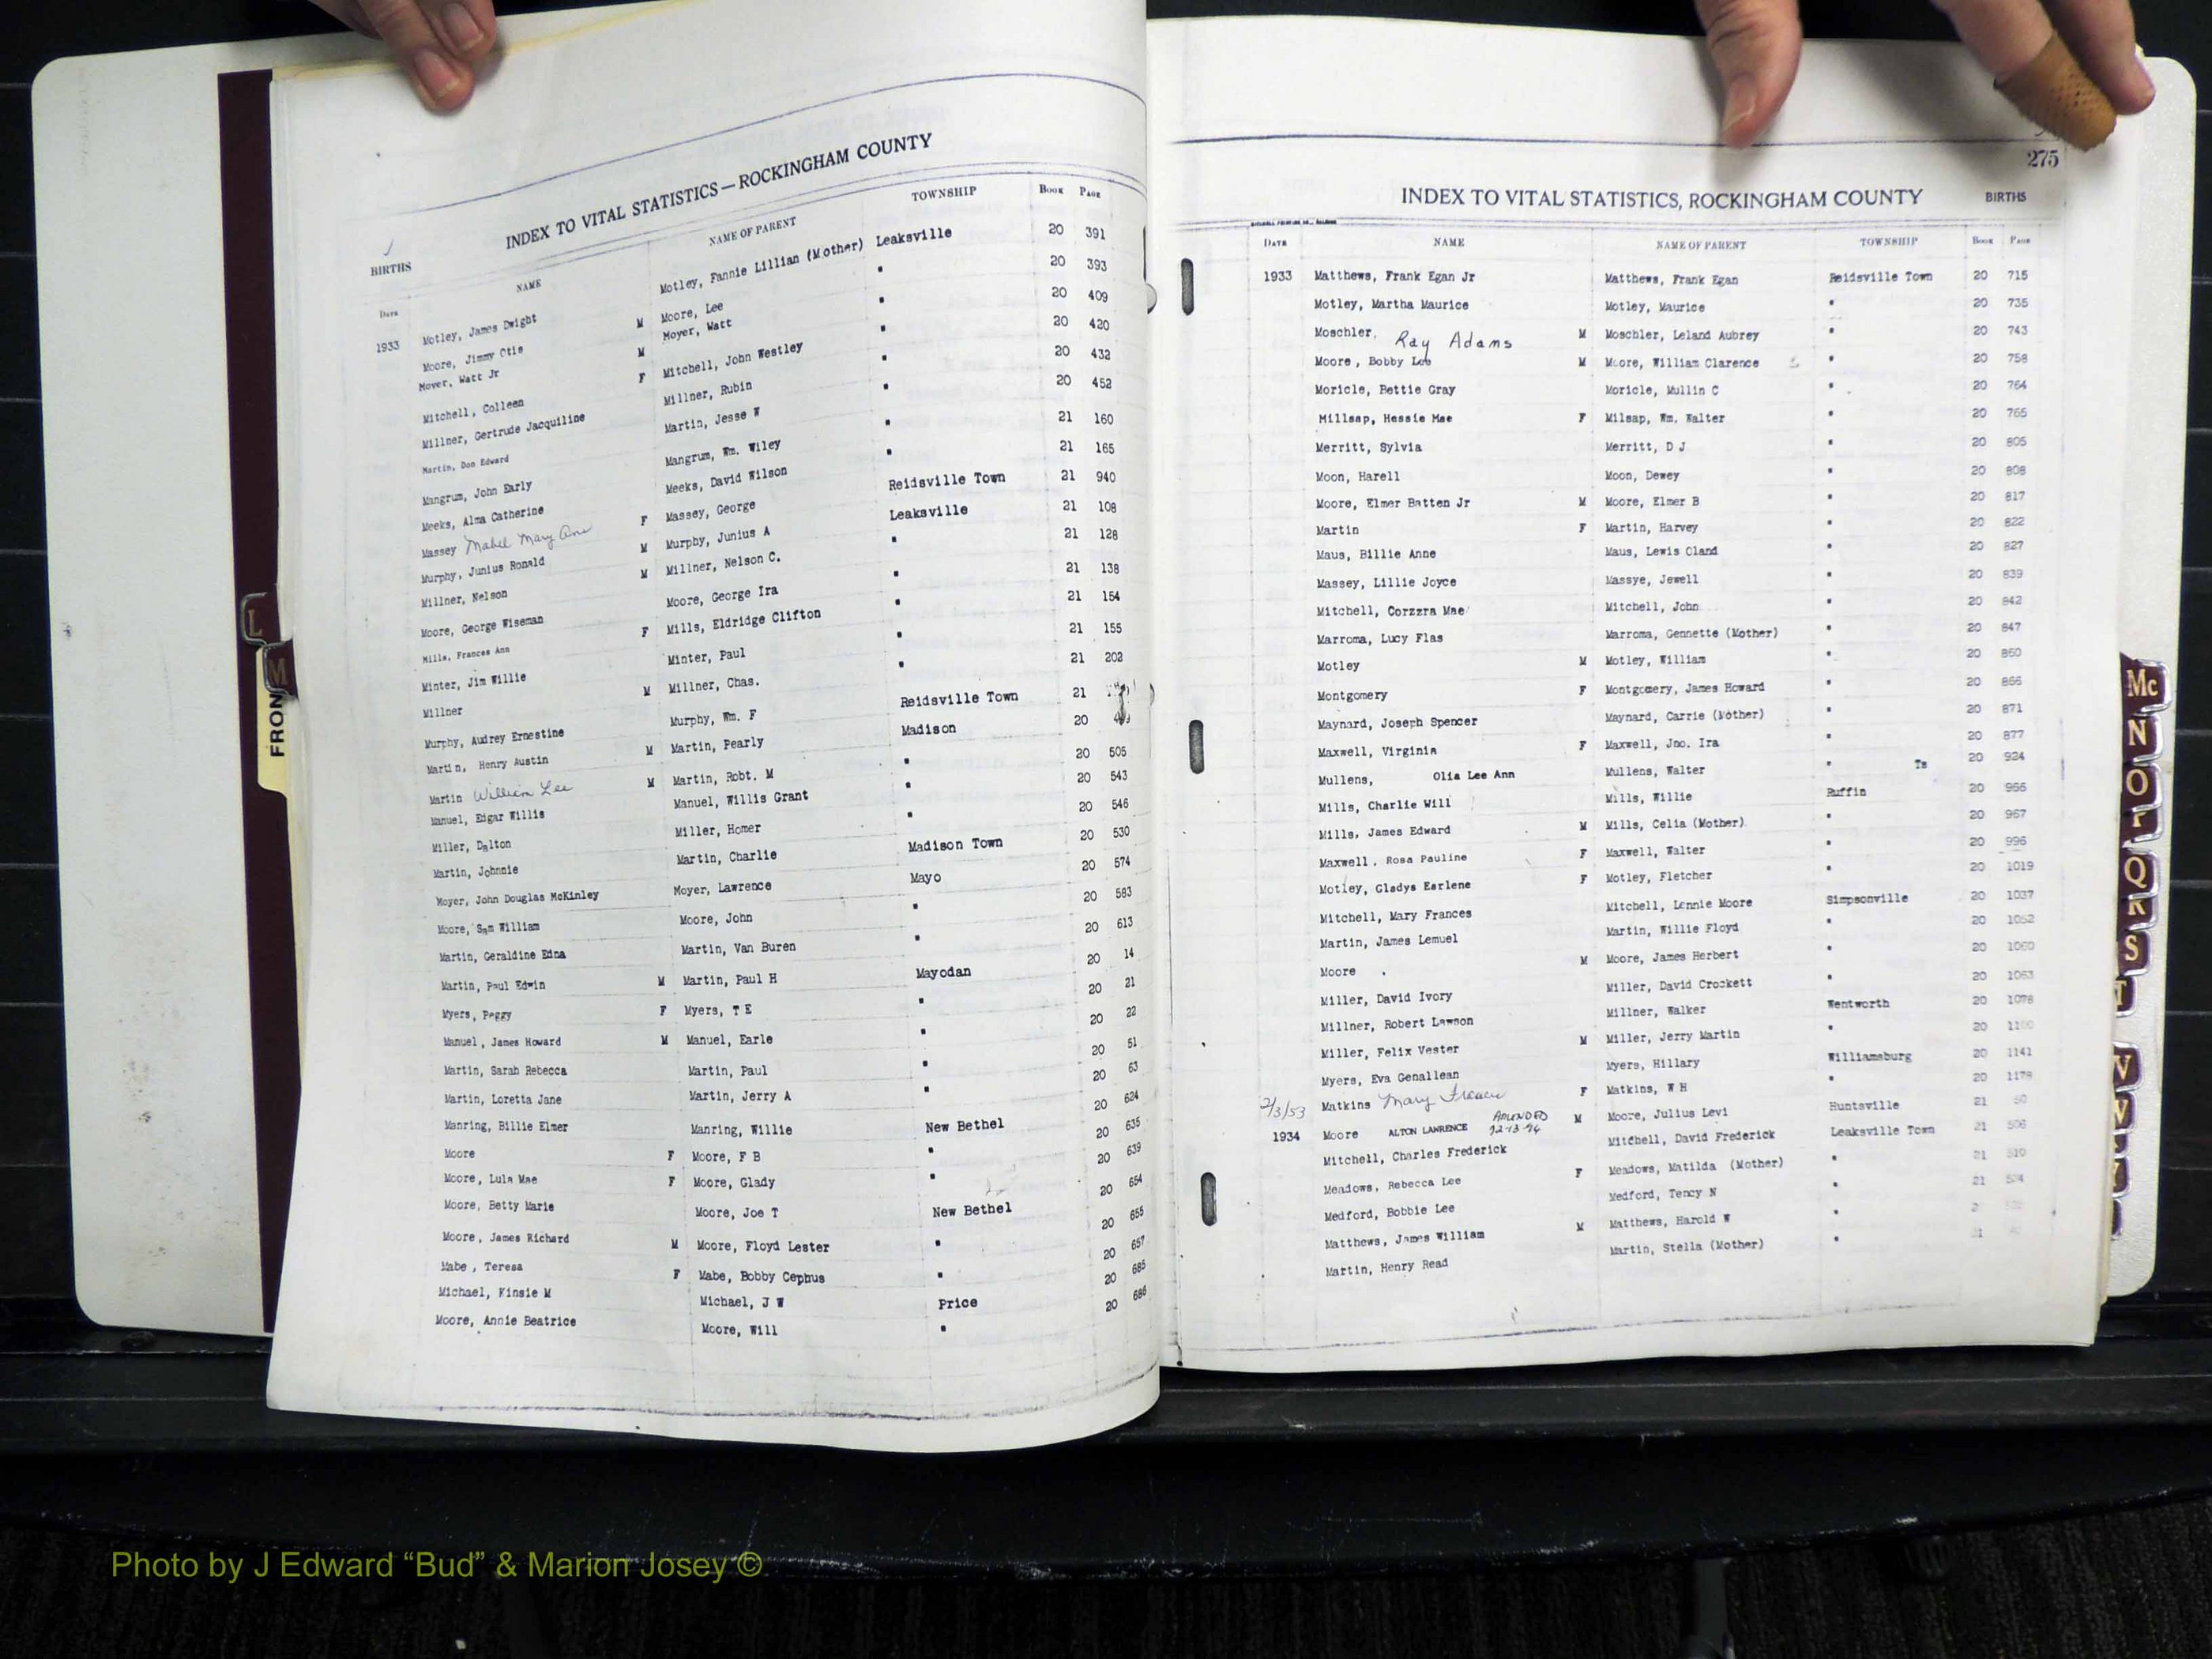 INDEX TO VITAL STATISTICS — ROCKINGHAM COUNTY
BIRTHS
Date NAME NAME OF PARENT TOWNSHIP Book Page
1933 Motley, James Dwight Motley, Fannie Lillian (Mother) Leaksville 20 391
Moore, Jimmy Otis M Moore, Lee " 20 393
Moyer, Watt Jr M Moyer, Watt " 20 409
Mitchell, Colleen F Mitchell, John Westley " 20 420
Millner, Gertrude Jacquiline Millner, Rubin " 20 432
Martin, Don Edward Martin, Jesse W " 20 452
Mangrum, John Early Mangrum, Wm. Wiley " 21 160
Meeks, Alma Catherine Meeks, David Wilson " 21 165
Massey Mabel Mary Ann F Massey, George Reidsville Town 21 940
Murphy, Junius Ronald M Murphy, Junius A Leaksville 21 108
Millner, Nelson M Millner, Nelson C. " 21 128
Moore, George Wiseman Moore, George Ira " 21 138
Mills, Frances Ann F Mills, Eldridge Clifton " 21 154
Minter, Jim Willie Minter, Paul " 21 155
Millner M Millner, Chas. " 21 202
Murphy, Audrey Ernestine Murphy, Wm. F Reidsville Town 21
Martin, Henry Austin M Martin, Pearly Madison 20
Martin William Lee M Martin, Robt. M " 20 505
Manuel, Edgar Willis Manuel, Willis Grant " 20 543
Miller, Dalton Miller, Homer " 20 546
Martin, Johnnie Martin, Charlie Madison Town 20 530
Moyer, John Douglas McKinley Moyer, Lawrence Mayo 20 574
Moore, Sam William Moore, John " 20 583
Martin, Geraldine Edna Martin, Van Buren " 20 613
Martin, Paul Edwin M Martin, Paul H Mayodan 20 14
Myers, Peggy F Myers, T E " 20 21
Manuel, James Howard M Manuel, Earle " 20 22
Martin, Sarah Rebecca Martin, Paul " 20 51
Martin, Loretta Jane Martin, Jerry A " 20 63
Manring, Billie Elmer Manring, Willie New Bethel 20 624
Moore F Moore, F B " 20 635
Moore, Lula Mae F Moore, Glady " 20 639
Moore, Betty Marie Moore, Joe T New Bethel 20 654
Moore, James Richard M Moore, Floyd Lester " 20 655
Mabe, Teresa F Mabe, Bobby Cephus " 20 657
Michael, Kinsie M Michael, J W Price 20 685
Moore, Annie Beatrice Moore, Will " 20 686
275
INDEX TO VITAL STATISTICS, ROCKINGHAM COUNTY BIRTHS
Date NAME NAME OF PARENT TOWNSHIP Book Page
1933 Matthews, Frank Egan Jr Matthews, Frank Egan Reidsville Town 20 715
Motley, Martha Maurice Motley, Maurice " 20 735
Moschler, Ray Adams M Moschler, Leland Aubrey " 20 743
Moore, Bobby Lee M Moore, William Clarence " 20 758
Moricle, Bettie Gray Moricle, Mullin C " 20 764
Millsap, Hessie Mae F Milsap, Wm. Walter " 20 765
Merritt, Sylvia Merritt, D J " 20 805
Moon, Harell Moon, Dewey " 20 808
Moore, Elmer Batten Jr M Moore, Elmer B " 20 817
Martin F Martin, Harvey " 20 822
Maus, Billie Anne Maus, Lewis Oland " 20 827
Massey, Lillie Joyce Massye, Jewell " 20 839
Mitchell, Corzzra Mae Mitchell, John " 20 842
Marroma, Lucy Flas Marroma, Gennette (Mother) " 20 847
Motley M Motley, William " 20 860
Montgomery F Montgomery, James Howard " 20 866
Maynard, Joseph Spencer Maynard, Carrie (Mother) " 20 871
Maxwell, Virginia F Maxwell, Jno. Ira " 20 877
Mullens, Olia Lee Ann Mullens, Walter " Ts 20 924
Mills, Charlie Will Mills, Willie Ruffin 20 966
Mills, James Edward M Mills, Celia (Mother) " 20 967
Maxwell, Rosa Pauline F Maxwell, Walter " 20 996
Motley, Gladys Earlene F Motley, Fletcher " 20 1019
Mitchell, Mary Frances Mitchell, Lennie Moore Simpsonville 20 1037
Martin, James Lemuel Martin, Willie Floyd " 20 1052
Moore M Moore, James Herbert " 20 1060
Miller, David Ivory Miller, David Crockett " 20 1063
Millner, Robert Lawson Millner, Walker Wentworth 20 1078
Miller, Felix Vester M Miller, Jerry Martin " 20
Myers, Eva Genallean Myers, Hillary Williamsburg 20 1141
2/3/53 Matkins Mary Frances F Matkins, W H " 20 1178
1934 Moore ALTON LAWRENCE AMENDED 12-13-94 M Moore, Julius Levi Huntsville 21 50
Mitchell, Charles Frederick Mitchell, David Frederick Leaksville Town 21 506
Meadows, Rebecca Lee F Meadows, Matilda (Mother) " 21 510
Medford, Bobbie Lee Medford, Tency N " 21 524
Matthews, James William M Matthews, Harold W "
Martin, Henry Read Martin, Stella (Mother) "
L
M
FRON
Mc
N
O
P
Q
R
S
T
V
W
Y
Photo by J Edward “Bud” & Marion Josey ©